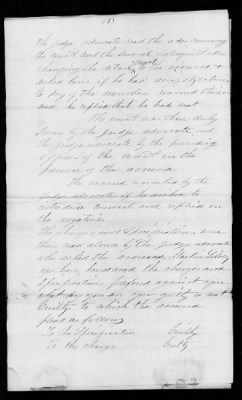 (3)
the judge advocate read the order convening
the court and the several subsequent orders
changing the detail to the accused &
asked him if he had any objections
to any of the members named therein
and he replied that he had not
The court was then duly
sworn by the judge advocate and
the judge advocate by the presiding
officer of the court in the
presence of the accused
The accused was asked by the
judge advocate if he wished to
introduce counsel and replied in
the negative
The charge and specifications were
then read aloud by the judge advocate
who asked the accused
you have heard the charge and
specifications preferred against you
what say you are you guilty or not
Guilty to which the accused
plead as follows
To the Specification Guilty
To the charge Guilty